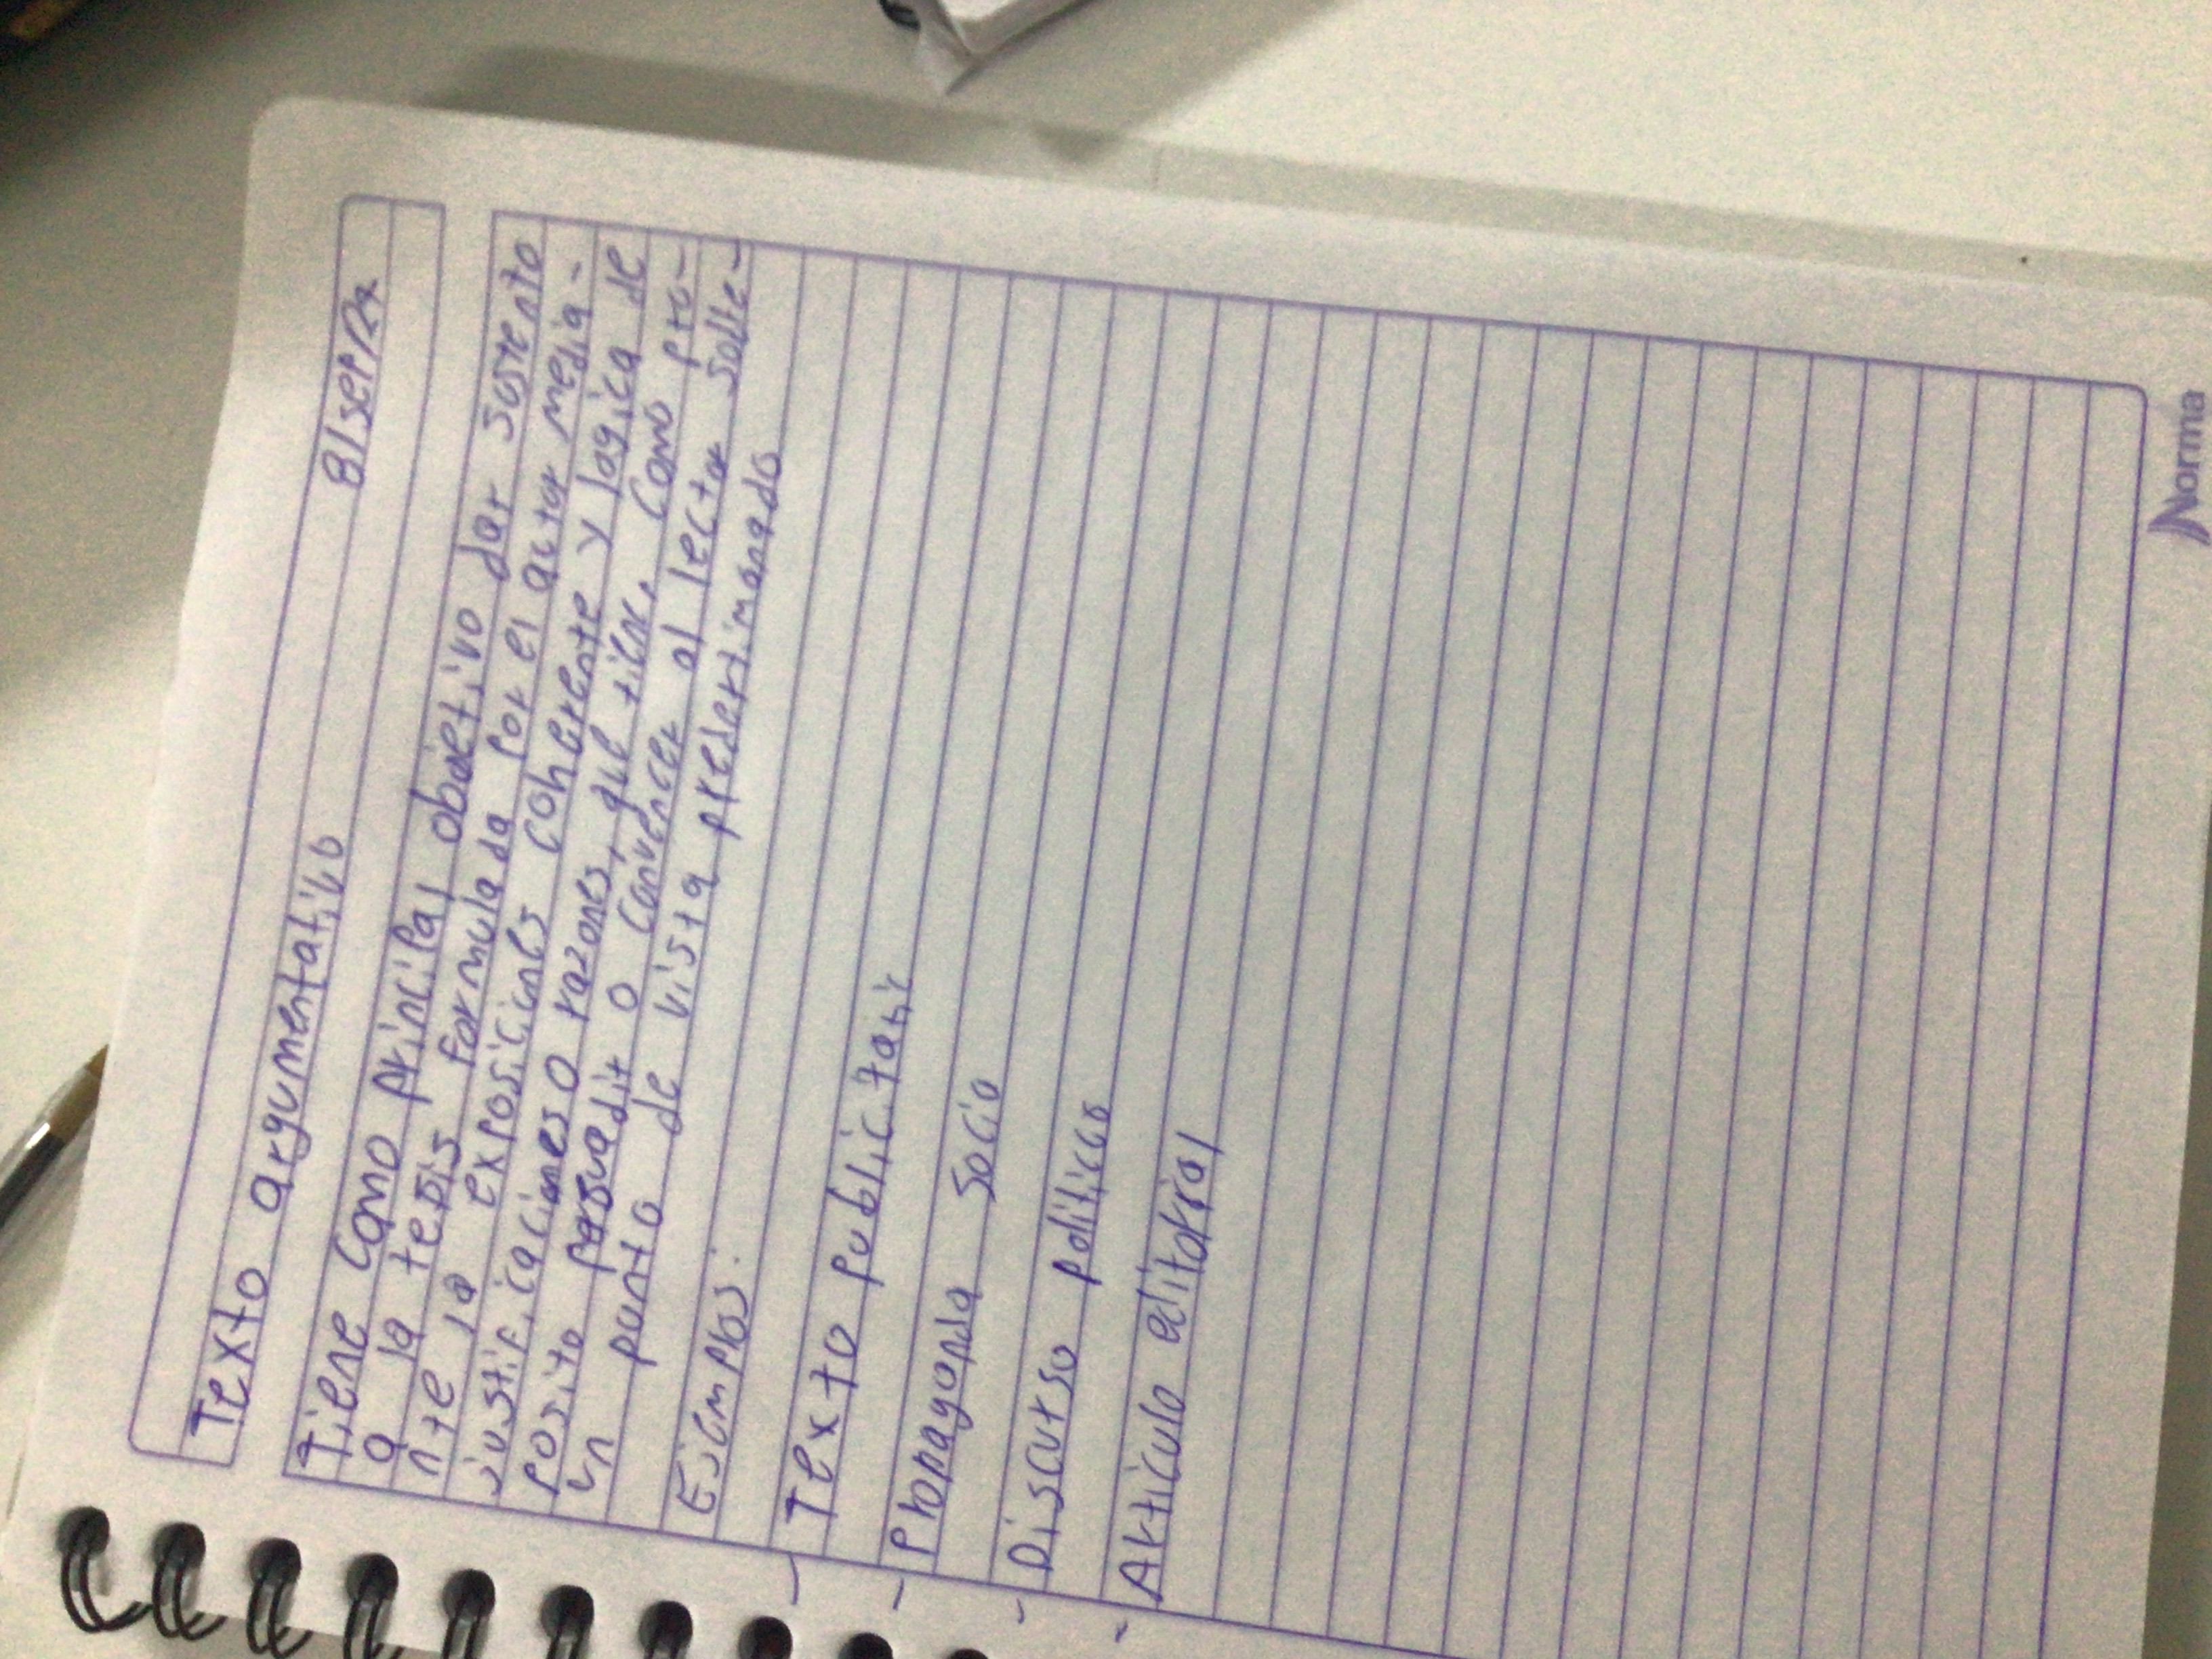 Texto argumentativo 8/sep/22
Tiene como principal objetivo dar sustento
a la tesis formulada por el autor media-
nte la exposiciones coherente y lagica de
justificaciones o razones, que tiene, como pro-
posito persuadir o convencer al lector sobre
un punto de vista predertimanado
Ejemplos:
- Texto publicitario
- Propaganda socio
- Discurso politico
- Articulo editorial
Norma